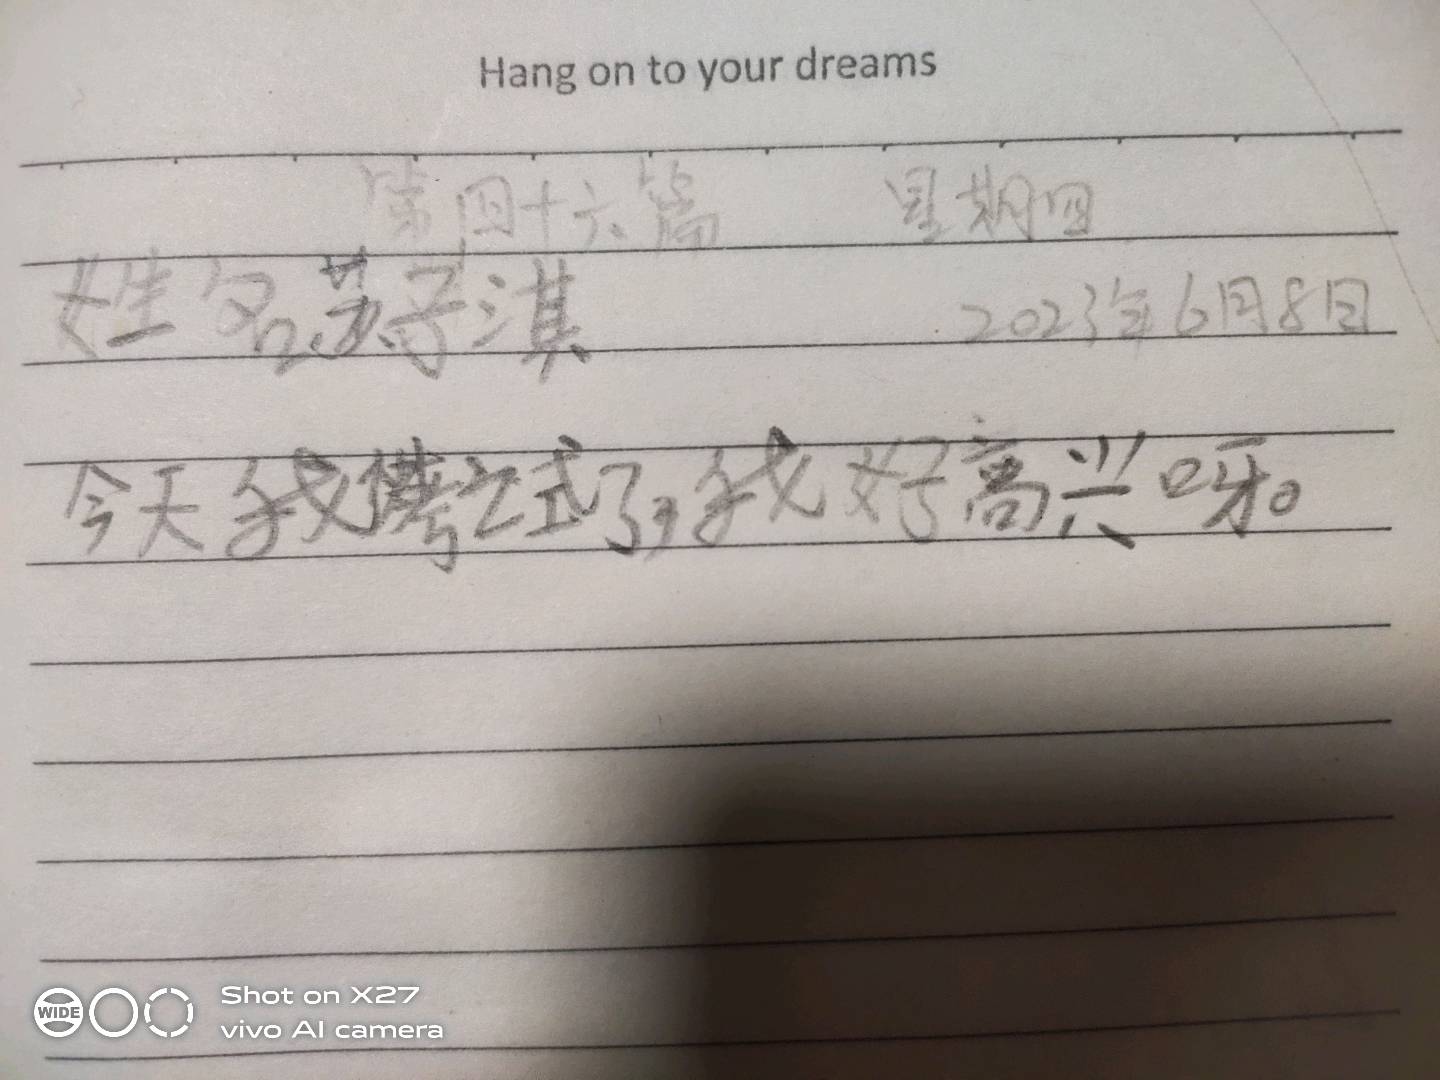 Hang on to your dreams
第四十六篇 星期四
姓名苏子淇 2023年6月8日
今天我考试了,我好高兴呀。
Shot on X27
WIDE
vivo AI camera